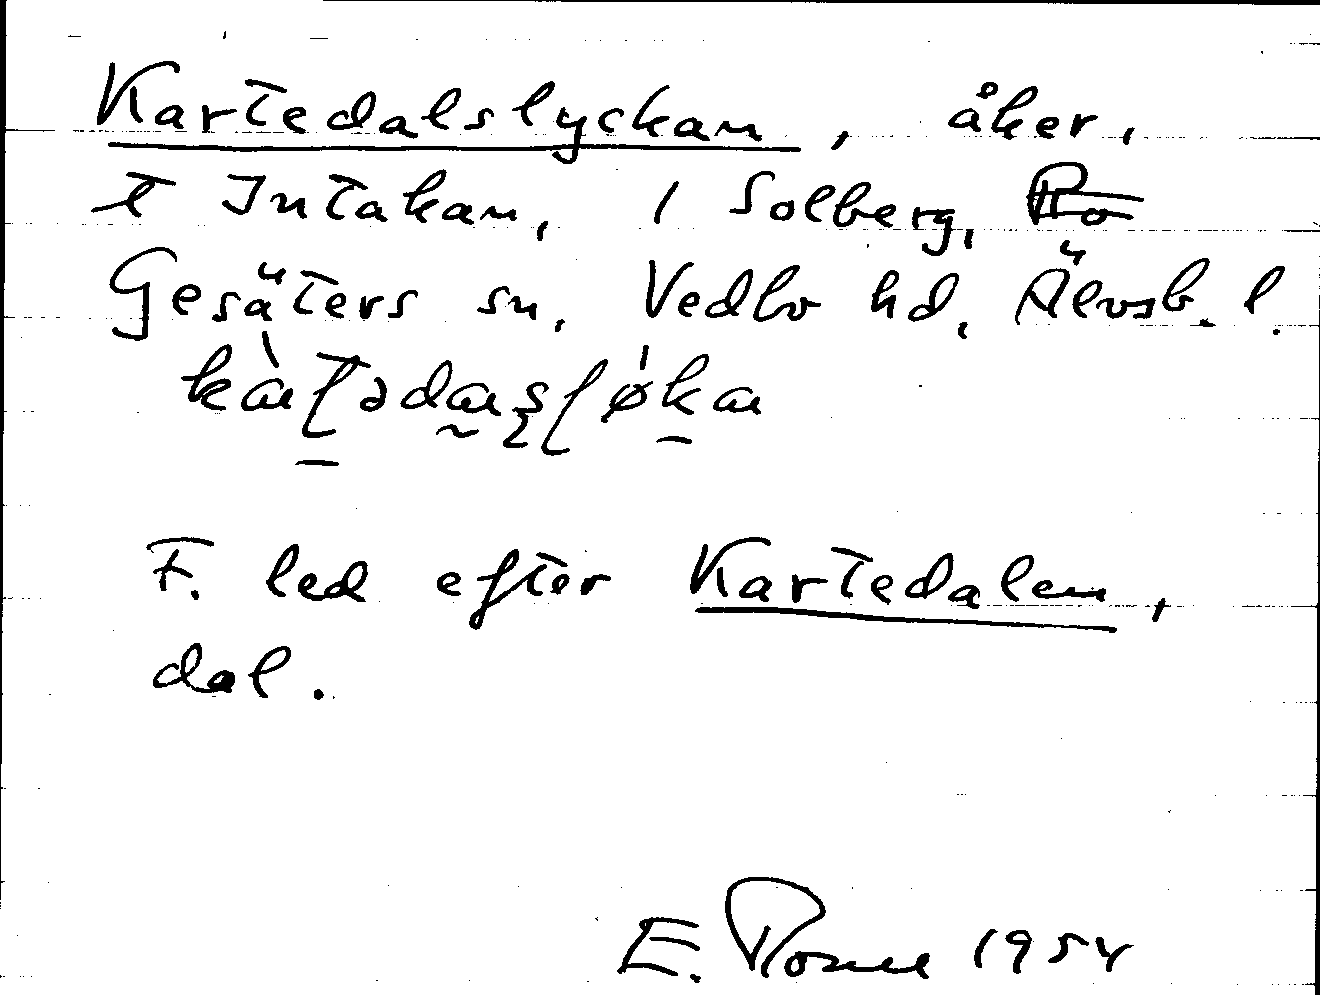 Kartedalslyckan, åker,
t Intakan, i Solberg,
Gesäters sn, Vedbo hd, Älvsb. l.
F. led efter Kartedalen,
dal.
E. 1954